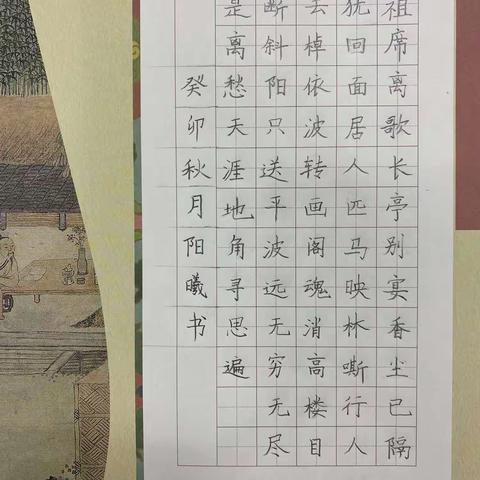 祖席离歌长亭别宴香尘已隔
犹回面居人匹马映林嘶行人
去棹依波转画阁魂消高楼目
断斜阳只送平波远无穷无尽
是离愁天涯地角寻思遍
癸卯秋月阳曦书